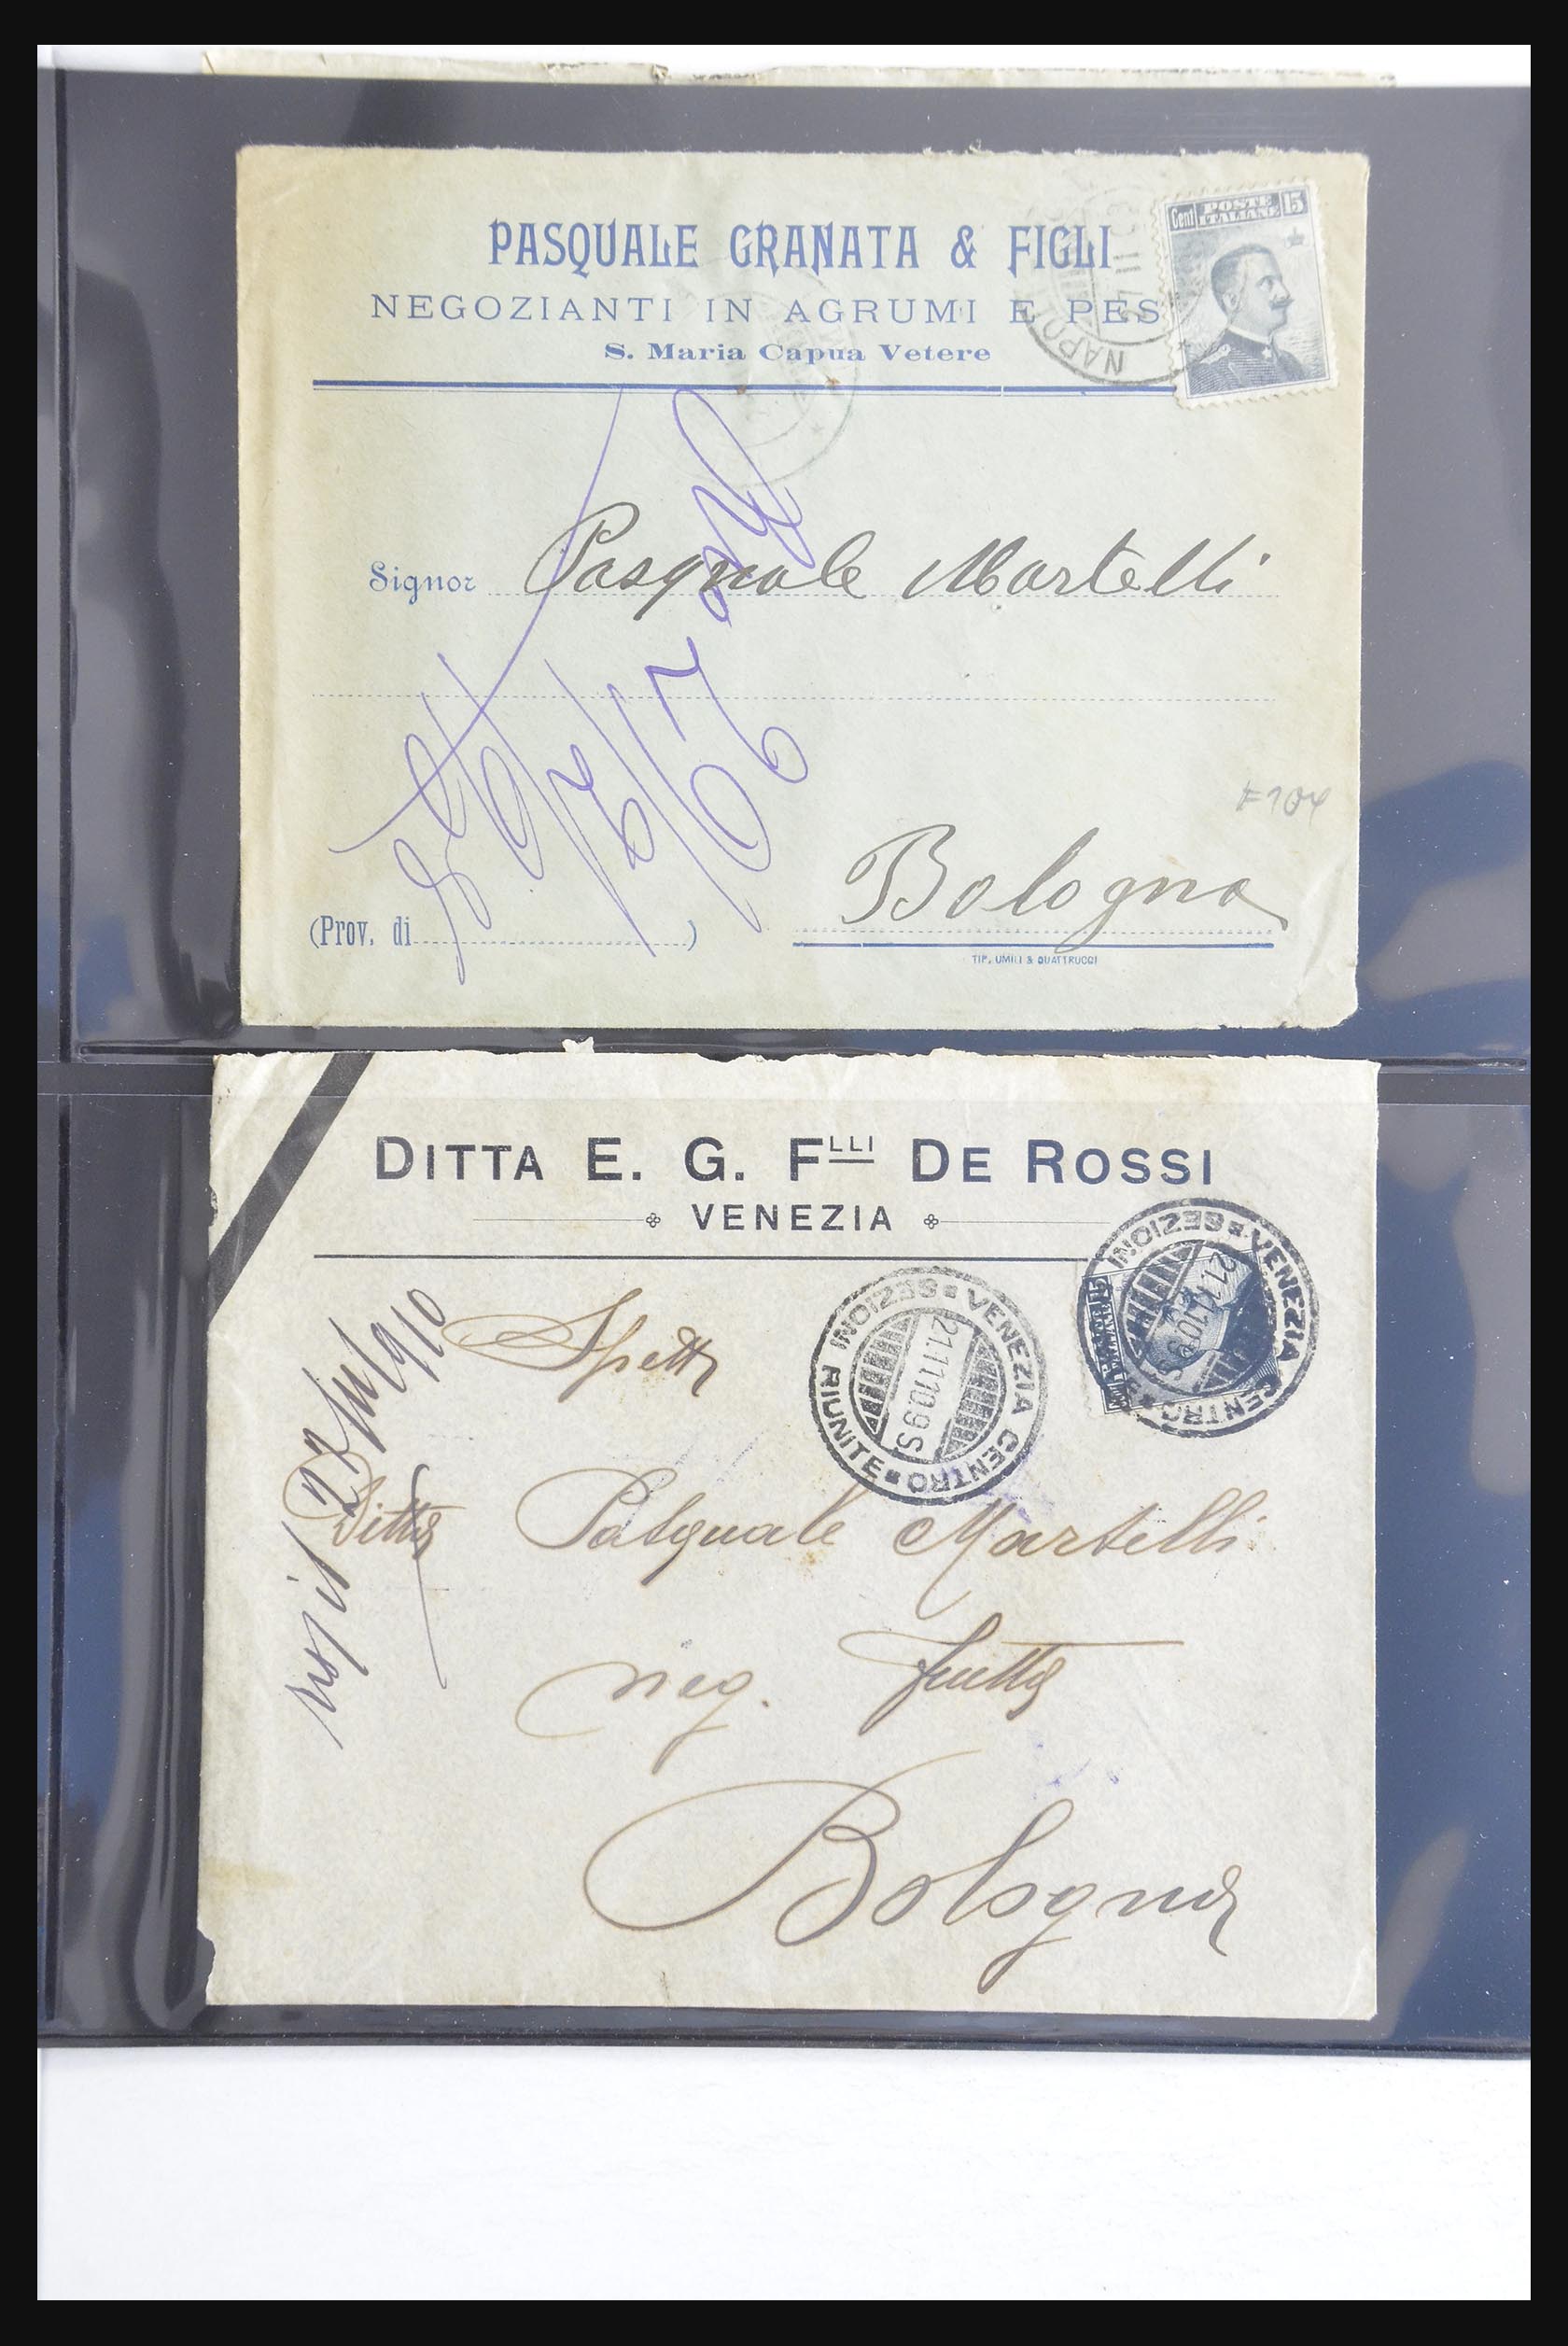 PASQUALE GRANATA & FIGLI
NEGOZIANTI IN AGRUMI E PES
S. Maria Capua Vetere
Cent POSTE ITALIANE 15
NAPOLI
Signor Pasquale Martelli
Bologna
(Prov. di )
TIP. UMILI & QUATTRUCCI
DITTA E. G. FLLI DE ROSSI
VENEZIA
VENEZIA CENTRO SEZIONI RIUNITE
21.11.10.9S
VENEZIA CENTRO SEZIONI
21.11.10.9S
Spett
Ditta Pasquale Martelli
neg. frutta
Bologna